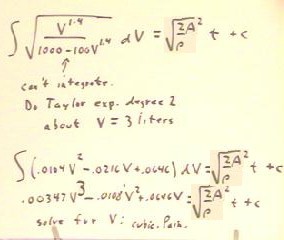 ∫ √(V^1.4 / (1000-100V^1.4)) dV = √(2A²/ρ) t + c
↑
can't integrate.
Do Taylor exp. degree 2
about V = 3 liters
∫(.0104 V² - .0216 V + .0646) dV = √(2A²/ρ) t + c
.00347 V³ - .0108 V² + .0646 V = √(2A²/ρ) t + c
solve for V: cubic. Pain.